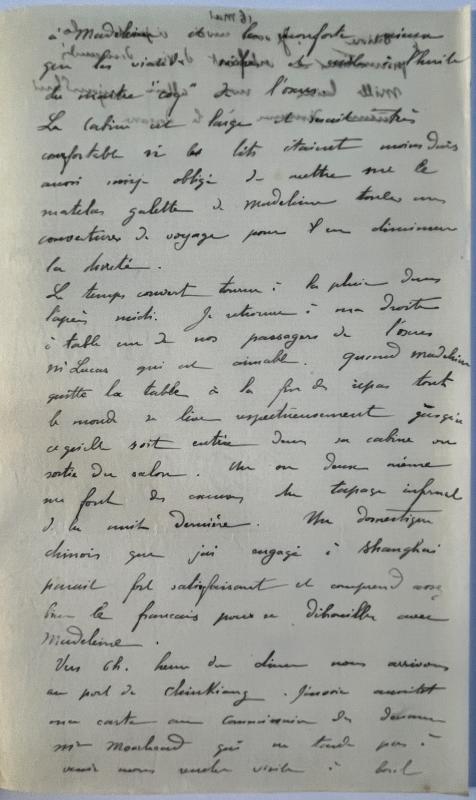 16 mai
à Madeleine et les conforte mieux
que les viandes à l'huile
du maitre "coq" de l'ours.
La cabine est large et serait très
confortable si les lits étaient moins durs
aussi suis-je obligé de mettre sur le
matelas galette de Madeleine toutes mes
couvertures de voyage pour en diminuer
la dureté.
Le temps couvert tourne à la pluie dans
l'après midi. Je retrouve à ma droite
à table un de nos passagers de l'ours
Mr Lucas qui est aimable. Quand Madeleine
quitte la table à la fin des repas tout
le monde se lève respectueusement jusqu'à
ce qu'elle soit entrée dans sa cabine ou
sortie du salon. Un ou deux même
me font des excuses du tapage infernal
de la nuit dernière. Un domestique
chinois que j'ai engagé à Shanghai
parait fort satisfaisant et comprend assez
bien le français pour se débrouiller avec
Madeleine.
Vers 6h. heure du diner nous arrivons
au port de Chinkiang. J'envoie aussitôt
ma carte au Commissaire des douanes
Mr Marchand qui ne tarde pas à
venir nous rendre visite à bord